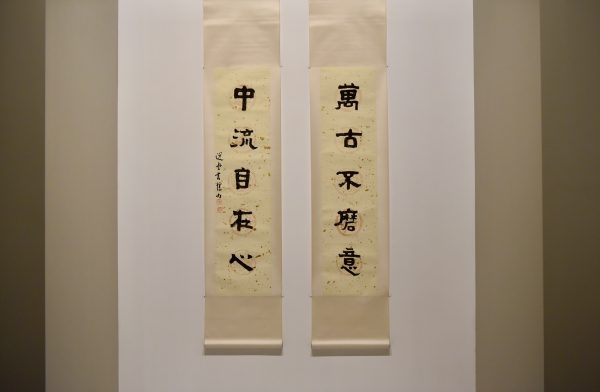 萬古不磨意
中流自在心
選堂